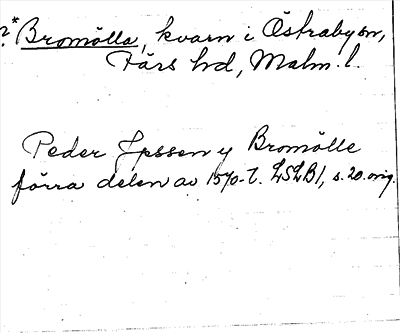 ?* Bromölla, kvarn i Östraby sn,
Färs hd, Malm. l.
Peder Jpssen y Bromölle
förra delen av 1570-t. LSLB 1, s. 20. orig.